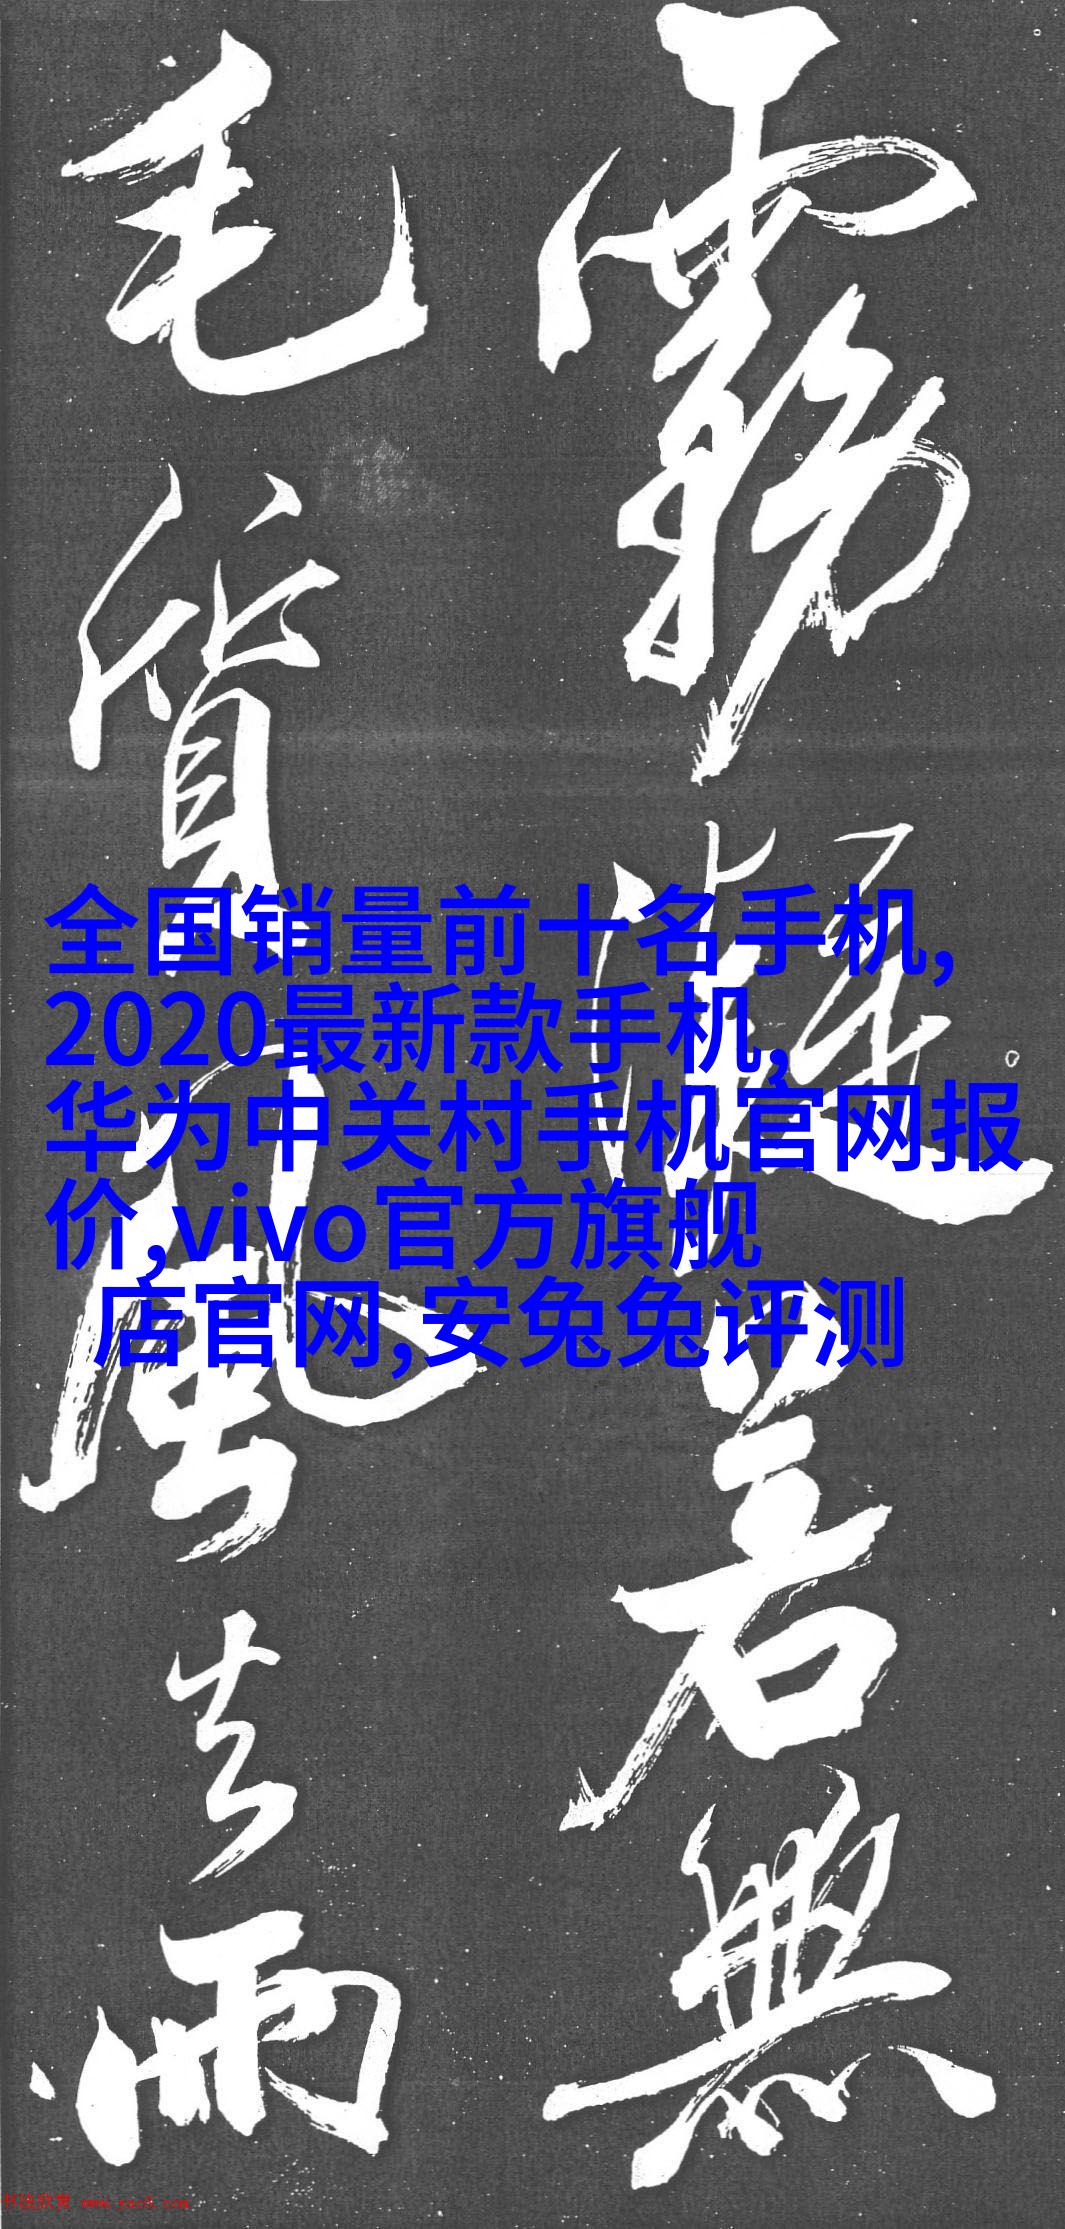 霧凝若無
毛質風去雨
全国销量前十名手机,
2020最新款手机,
华为中关村手机官网报
价,vivo官方旗舰
店官网,安兔兔评测
书法欣赏 www.yac8.com